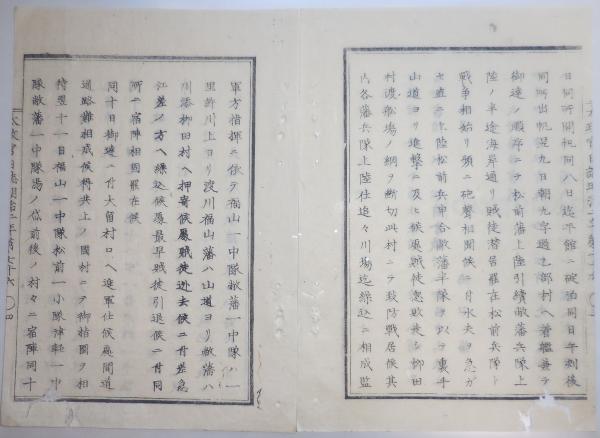 日同所開帆同八日迄平館ニ碇泊同日午刻後
同所出帆是九日朝九字過乙部村ヘ着艦兼テ
御達ノ順序ニテ松前藩上陸引續敝藩兵隊上
陸ノ半途海岸通リ賊徒潜居羅在松前兵隊ト
戰争相始リ頻ニ砲聲相聞候ニ付水夫ヲ急カ
セ直ニ上陸松前兵申合敝藩半隊ヲ以テ裏手
山道ヨリ進撃ニ及ヒ候處賊徒忽敗走シ柳田
村渡船場ノ綱ヲ断切此村ニテ致防戰居候其
内各藩兵隊上陸仕追々川場迄繰込ニ相成監
軍方指揮ニ依テ福山一中隊敝藩一中隊ハ一
里許川上ヨリ渡川福山藩ハ山道ヨリ敝藩ハ
川添柳田村ヘ押寄候處賊徒逃去候ニ付差急
江差ノ方ヘ繰込候處最早賊徒引退候ニ付同
所ニ宿陣相固羅在候
同十日御達ニ付大留村口ヘ進軍仕候處間道
通路難相成候得共上ノ國村ニテ御指圖ヲ相
待翌十一日福山一中隊松前一小隊津軽一中
隊敝藩一中隊湯ノ岱前後ノ村々ニ宿陣同十
太政官日誌明治二年第七十六 〇四